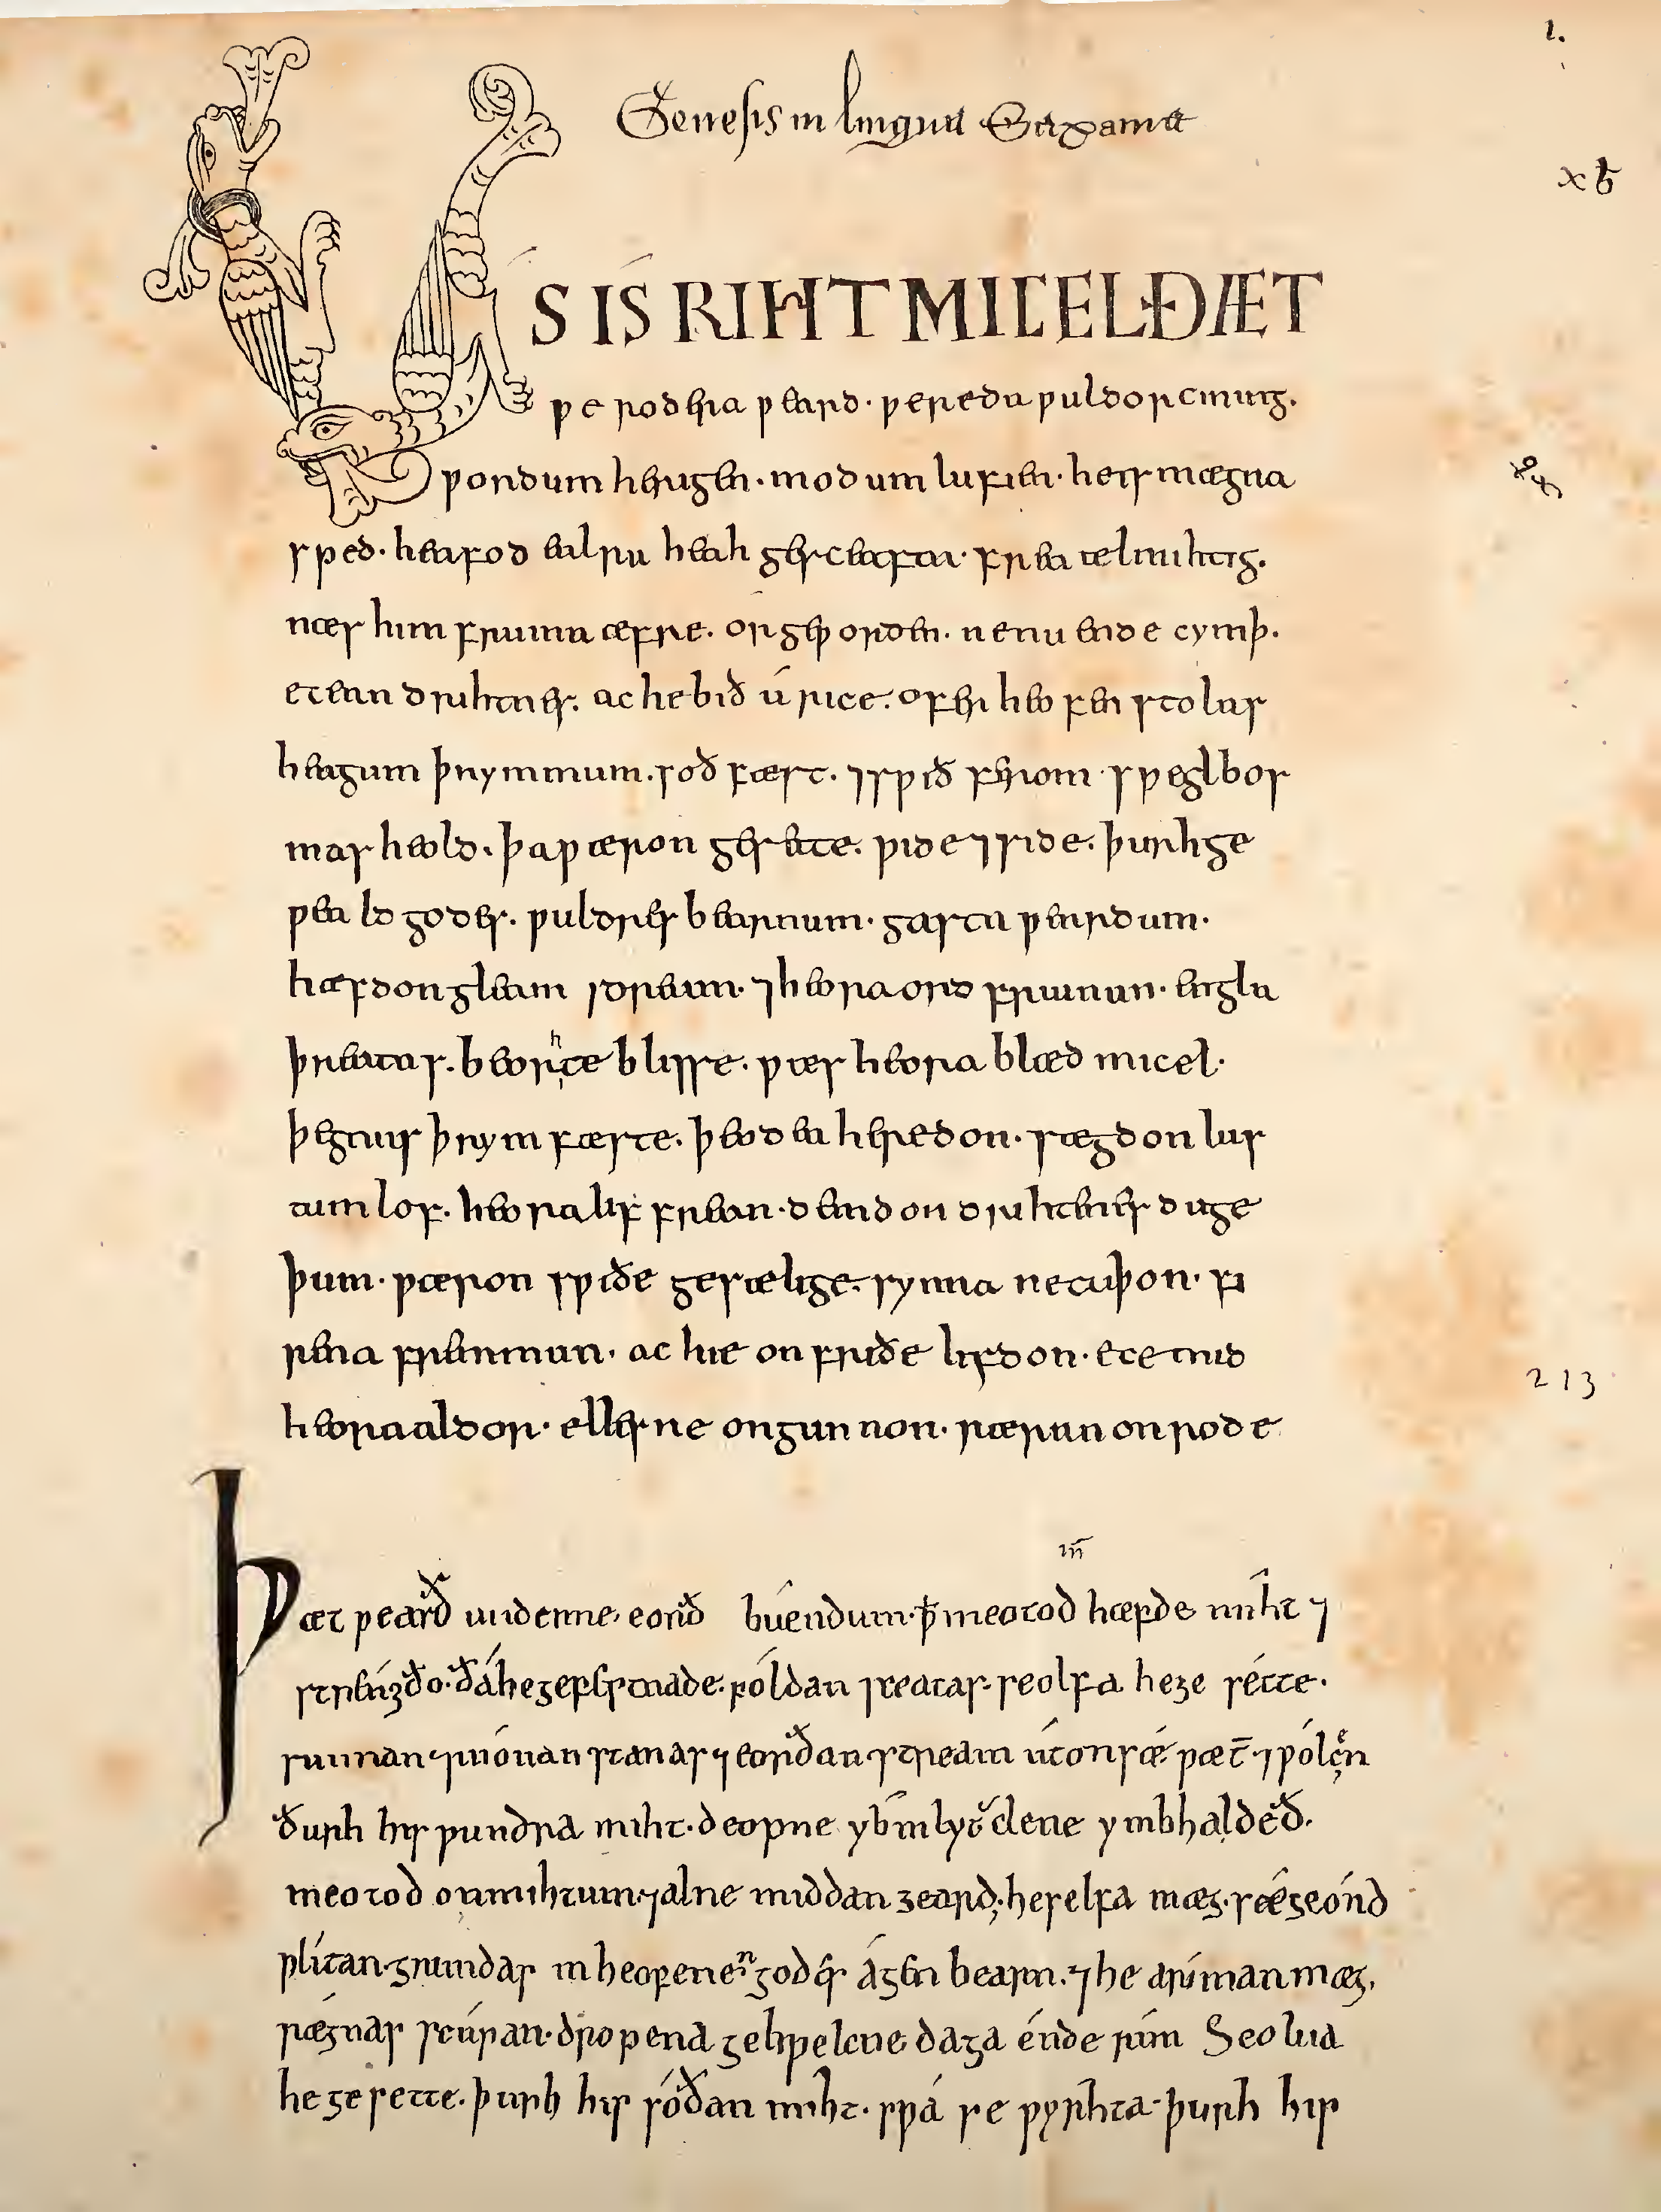 1.
Genesis in lingua Saxania
xƀ
S IS RIHT MICEL ÐÆT
ƿe rodera ƿeard · ƿereda ƿuldorcining.
ƿordum herigen · modum lufien · he is mægna
sped · heafod ealra heah gesceafta · frea ælmihtig.
næs him fruma æfre · or geƿorden · ne nu ende cymþ.
ecean drihtnes · ac he bið á rice · ofer heofen stolas
heagum þrymmum · soð fæst · ⁊ sƿið ferom · sƿegl bos
mas heold · þa ƿæron gesette · ƿide ⁊ side · þurh ge
ƿea ld godes · ƿuldres bearnum · gasta ƿeardum ·
hæfdon gleam ⁊ dream · ⁊ heora ord fruman · engla
þreatas · beorhte blisse · ƿæs heora blæd micel ·
þegnas þrymfæste · þeoden heredon · sægdon lus
tum lof · heora lif frean · demdon drihtenes duge
þum · ƿæron sƿiðe gesælige · synna ne cuþon · fi
rena fremman · ac hie on friðe lifdon · ece mid
heora aldor · elles ne ongunnon · ræran on rode
213
Þæt ƿearð underne eorð buendum · ꝥ meotod hæfde miht ⁊
strengðo · ða he gefestnade · foldan sceatas · seolfa he ge sette ·
sunnan ⁊ monan stanas ⁊ eorðan · stream ut on sæ · ƿæt̄ ⁊ ƿolcen
ðurh his ƿundra miht · deopne ybmlyt clene ymbhaldeð ·
meotod on mihtum ⁊ alne middan geard · he selfa mæg · sæ geond
ƿlitan · grundas in heofene godes agen bearn · ⁊ he ariman mæg ·
rægnas scuran · dropena gehƿelcne daga ende rim Seolua
he ge sette · þurh his soðan miht · sƿa se ƿyrhta · þurh his